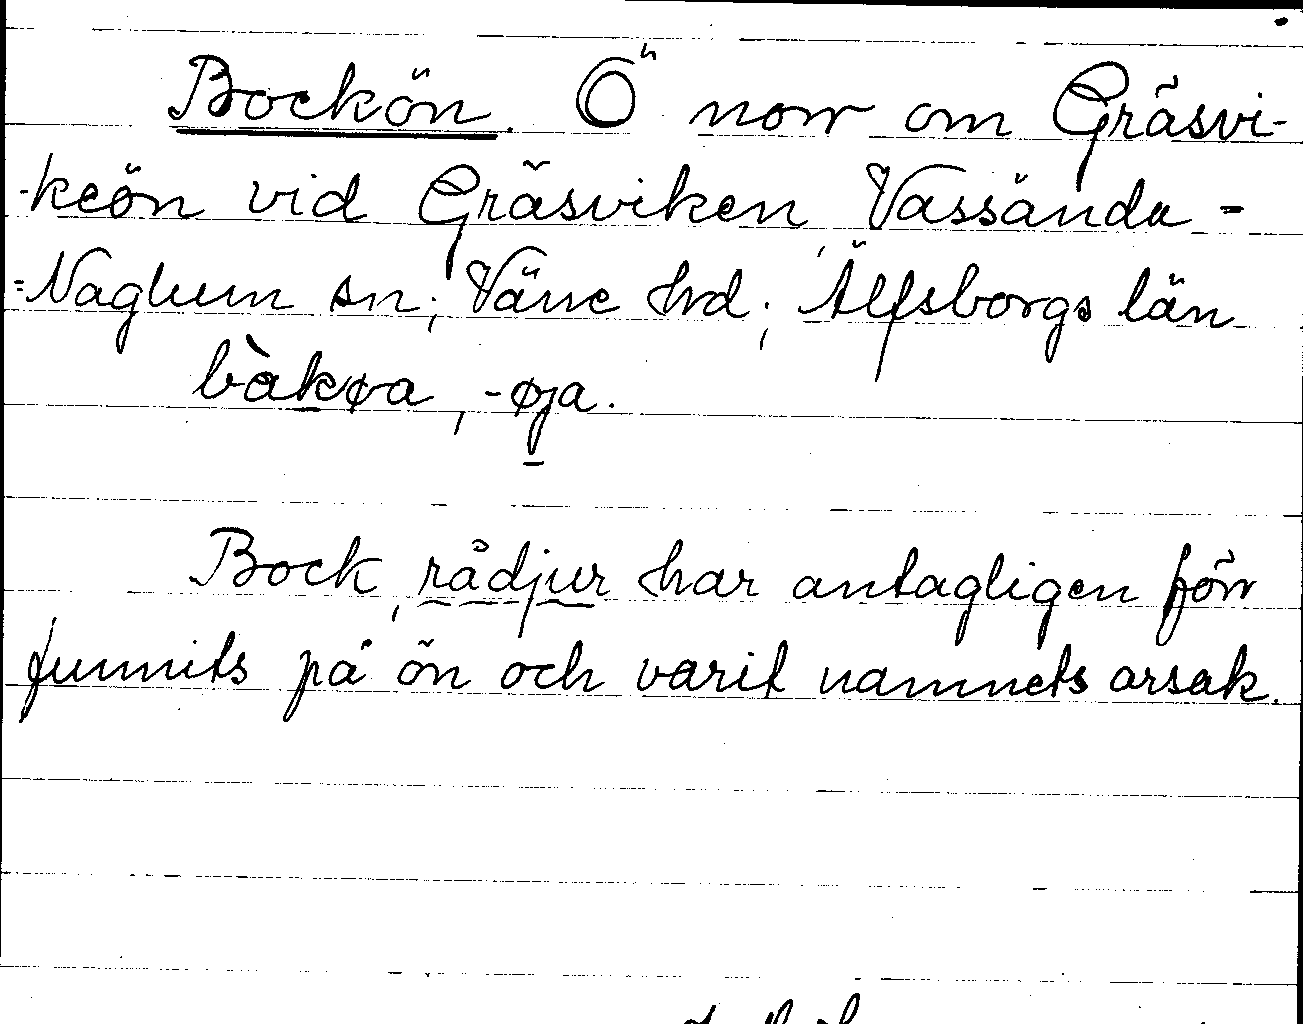 Bockön. Ö norr om Gräsvi-
-keön vid Gräsviken, Vassända-
=Naglum sn; Väne hrd; Älfsborgs län
bàkøa, -øja.
Bock, rådjur har antagligen förr
funnits på ön och varit namnets orsak.